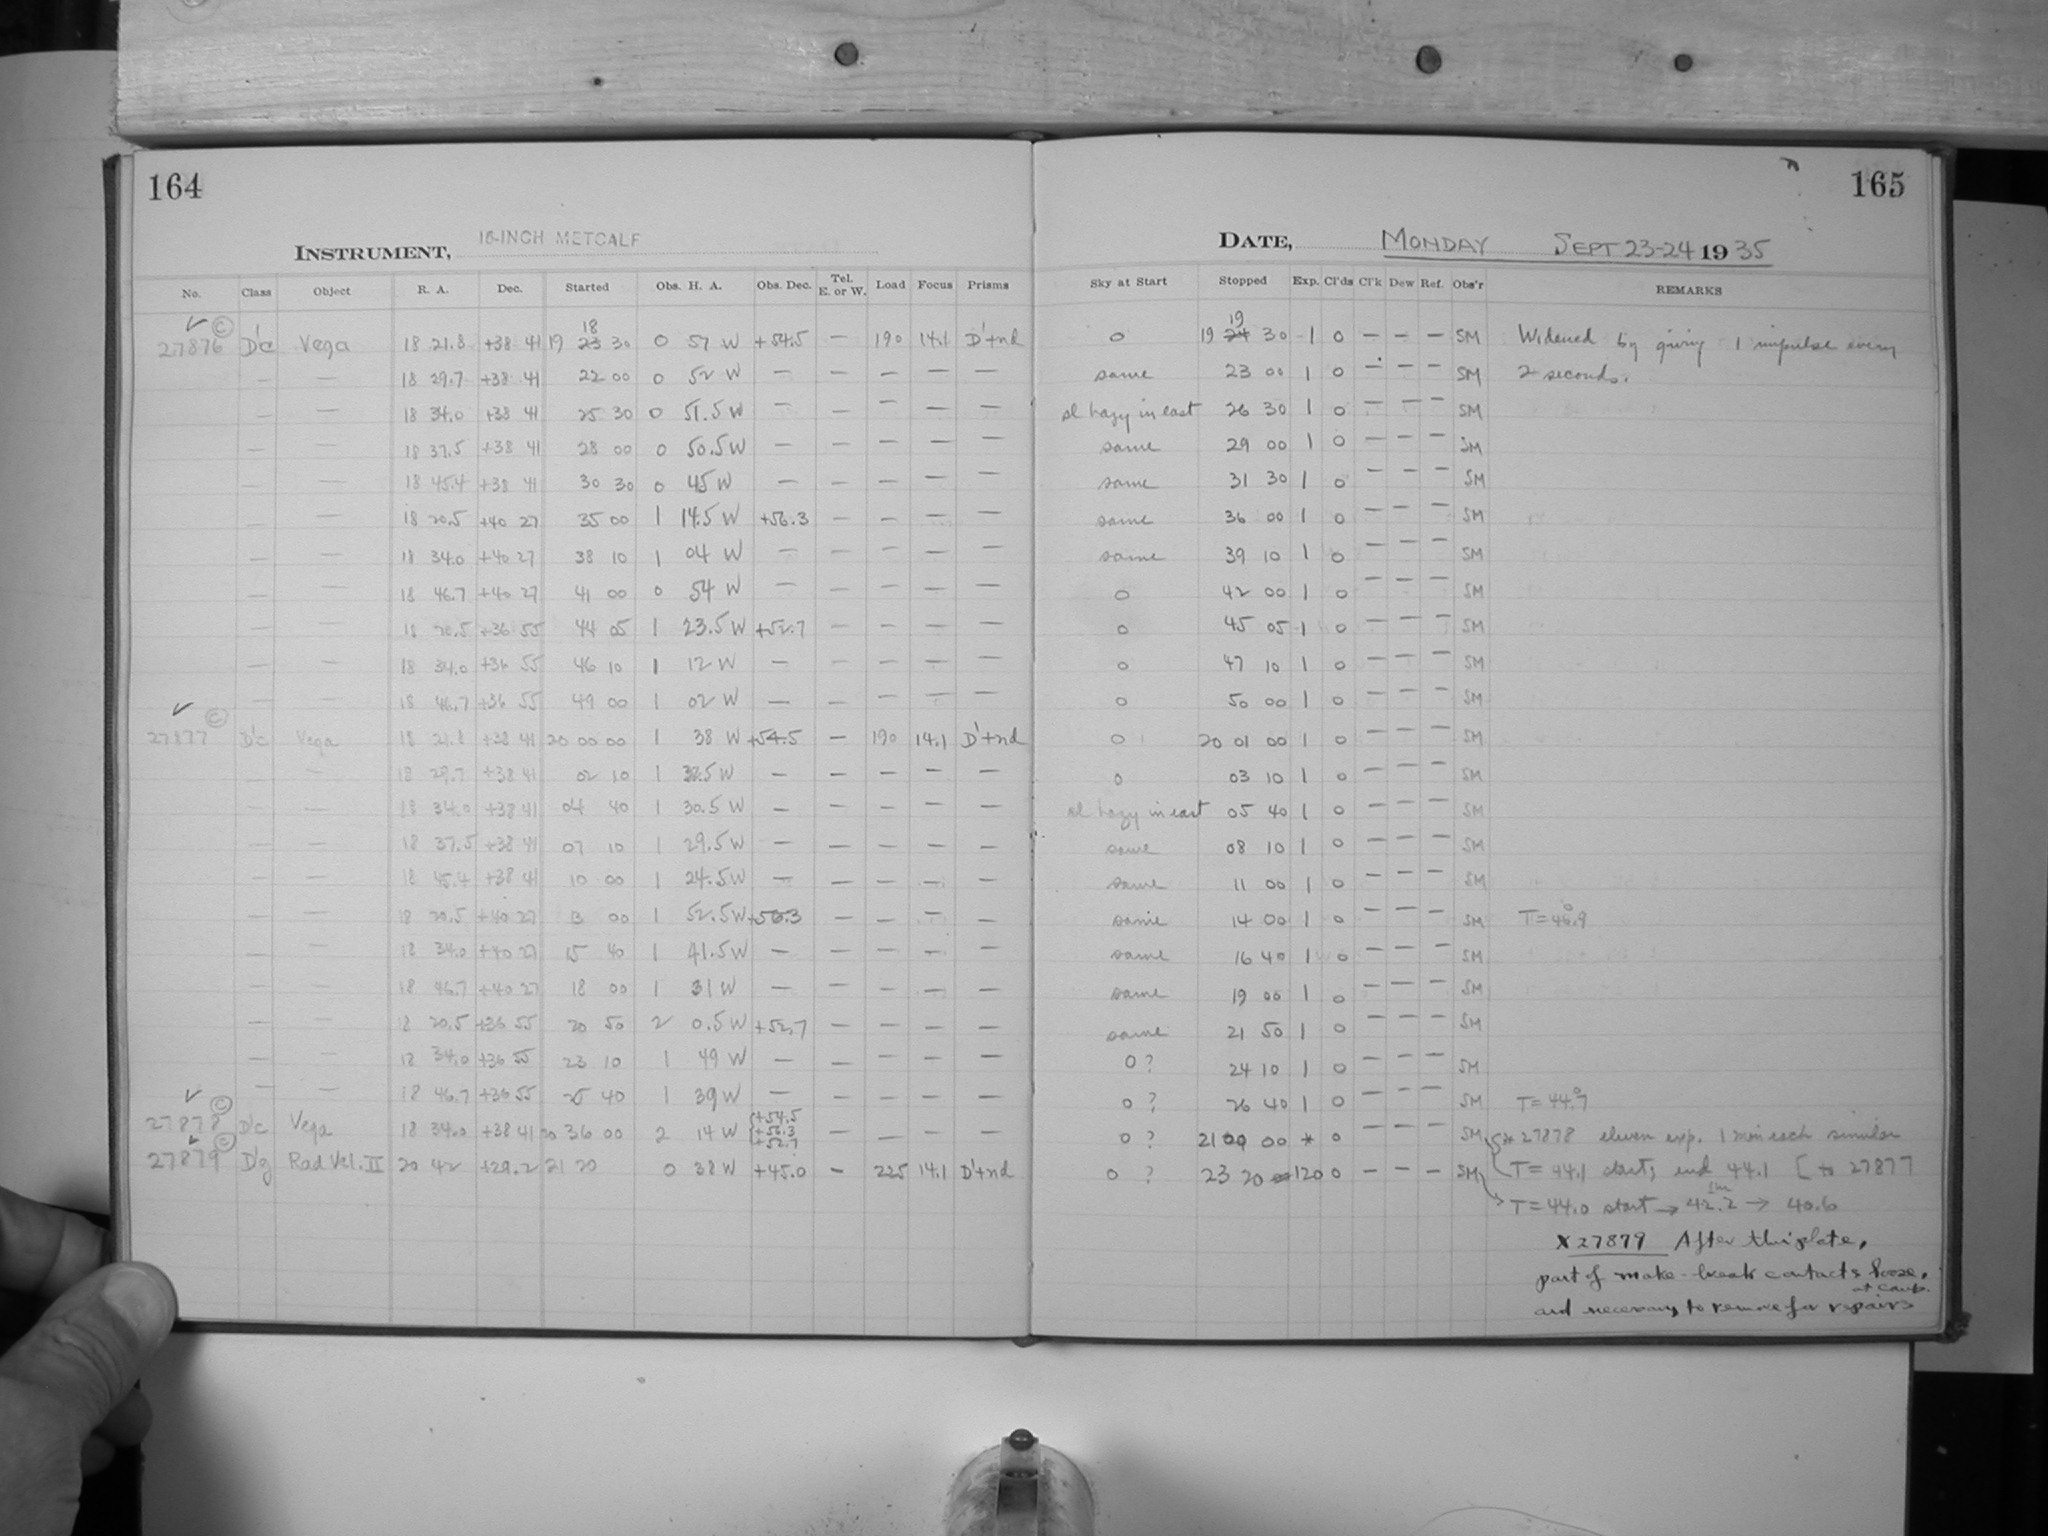 164
165
INSTRUMENT, 16-INCH METCALF
DATE, MONDAY SEPT 23-24 1935
No. Class Object R. A. Dec. Started Obs. H. A. Obs. Dec. Tel. E. or W. Load Focus Prisms Sky at Start Stopped Exp. Cl'ds Cl'k Dew Ref. Obs'r REMARKS
27876 © D'c Vega 18 21.8 +38 41 19 23 18 30 0 57 W +54.5 — 190 14.1 D'+nd 0 19 24 19 30 1 0 — — — SM Widened by giving 1 impulse every
— — 18 29.7 +38 41 22 00 0 52 W — — — — — same 23 00 1 0 — — — SM 2 seconds.
— — 18 34.0 +38 41 25 30 0 51.5 W — — — — — sl hazy in east 26 30 1 0 — — — SM
— — 18 37.5 +38 41 28 00 0 50.5 W — — — — — same 29 00 1 0 — — — SM
— — 18 45.4 +38 41 30 30 0 45 W — — — — — same 31 30 1 0 — — — SM
— — 18 20.5 +40 27 35 00 1 14.5 W +56.3 — — — — same 36 00 1 0 — — — SM
— — 18 34.0 +40 27 38 10 1 04 W — — — — — same 39 10 1 0 — — — SM
— — 18 46.7 +40 27 41 00 0 54 W — — — — — 0 42 00 1 0 — — — SM
— — 18 20.5 +36 55 44 05 1 23.5 W +52.7 — — — — 0 45 05 1 0 — — — SM
— — 18 34.0 +36 55 46 10 1 12 W — — — — — 0 47 10 1 0 — — — SM
— — 18 46.7 +36 55 49 00 1 02 W — — — — — 0 50 00 1 0 — — — SM
27877 © D'c Vega 18 21.8 +38 41 20 00 00 1 38 W +54.5 — 190 14.1 D'+nd 0 20 01 00 1 0 — — — SM
— — 18 29.7 +38 41 02 10 1 32.5 W — — — — — 0 03 10 1 0 — — — SM
— — 18 34.0 +38 41 04 40 1 30.5 W — — — — — sl hazy in east 05 40 1 0 — — — SM
— — 18 37.5 +38 41 07 10 1 29.5 W — — — — — same 08 10 1 0 — — — SM
— — 18 45.4 +38 41 10 00 1 24.5 W — — — — — same 11 00 1 0 — — — SM
— — 18 20.5 +40 27 13 00 1 52.5 W +56.3 — — — — same 14 00 1 0 — — — SM T=46.9
— — 18 34.0 +40 27 15 40 1 41.5 W — — — — — same 16 40 1 0 — — — SM
— — 18 46.7 +40 27 18 00 1 31 W — — — — — same 19 00 1 0 — — — SM
— — 18 20.5 +36 55 20 50 2 0.5 W +52.7 — — — — same 21 50 1 0 — — — SM
— — 18 34.0 +36 55 23 10 1 49 W — — — — — 0 ? 24 10 1 0 — — — SM
— — 18 46.7 +36 55 25 40 1 39 W — — — — — 0 ? 26 40 1 0 — — — SM T=44.7
27878 © D'c Vega 18 34.0 +38 41 20 36 00 2 14 W {+54.5 +56.3 +52.7 — — — — 0 ? 21 00 00 * 0 — — — SM * 27878 eleven exp. 1 min each similar
27879 © D'g Rad Vel. II 20 42 +29.2 21 20 0 38 W +45.0 — 225 14.1 D'+nd 0 ? 23 20 120 0 — — — SM T=44.1 start, end 44.1 [to 27877
T=44.0 start → 42.2 → 40.6
X 27879 After this plate,
part of make-break contacts loose,
and necessary to remove for repairs
at Camb.